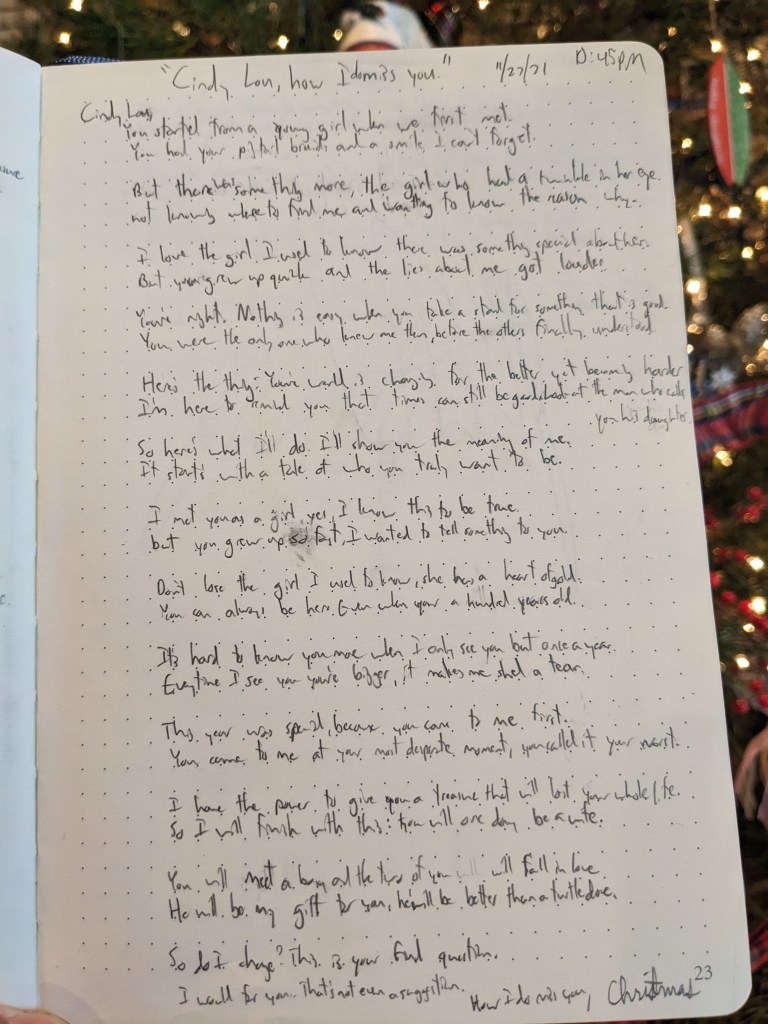 "Cindy Lou, how I do miss you." 11/27/21 10:45PM
Cindy Lou,
You started from a young girl when we first met.
You had your pigtail braids and a smile I can't forget.
But there was something more, the girl who had a twinkle in her eye.
not knowing where to find me and wanting to know the reason why.
I love the girl I used to know there was something special about her.
But you grew up quick and the lies about me got louder
You're right. Nothing is easy when you take a stand for something that is good
You were the only one who knew me then, before the others finally understood.
Here's the thing: Your world is changing for the better yet becoming harder
I'm here to remind you that times can still be good, look at the man who calls
you his daughter.
So here's what I'll do. I'll show you the meaning of me.
It starts with a tale of who you truly want to be.
I met you as a girl yes, I know this to be true
but you grew up so fast, I wanted to tell something to you.
Don't lose the girl I used to know, she has a heart of gold.
You can always be her. Even when your a hundred years old.
It's hard to know you more when I only see you but once a year.
Everytime I see you you're bigger, it makes me shed a tear.
This year was special, because you came to me first.
You came to me at your most desperate moment, you called it your worst.
I have the power to give you a treasure that will last your whole life.
So I will finish with this: You will one day be a wife.
You will meet a boy and the two of you will fall in love
He will be my gift for you, he will be better than a turtle dove.
So do I change? This is your final question.
I would for you. That's not even a suggestion.
How I do miss you, Christmas
23